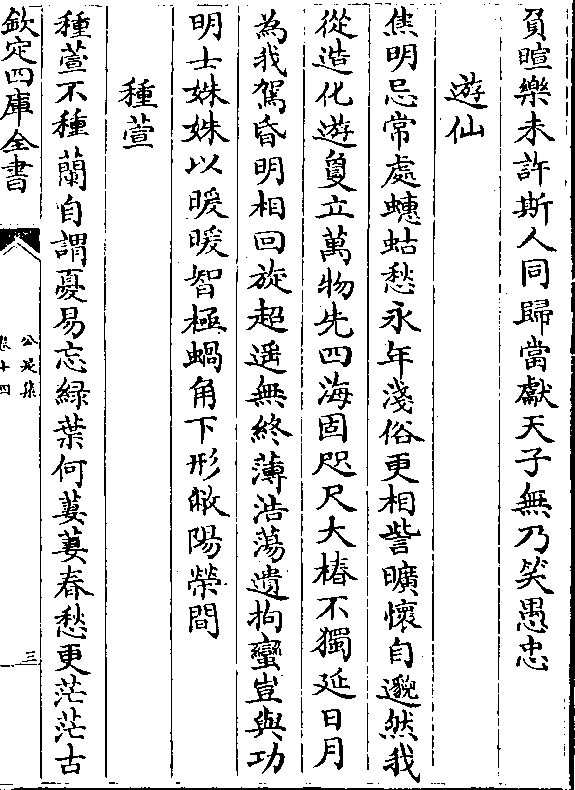 負暄樂未許斯人同歸當獻天子無乃笑愚忠
遊仙
焦明忌常處蟪蛄愁永年淺俗更相訾曠懷自邈然我
從造化遊敻立萬物先四海固咫尺大椿不獨延日月
為我駕昏明相回旋超遥無終薄浩蕩遺拘攣豈與功
明士姝姝以暖暖智極蝸角下形敝陽榮間
種萱
種萱不種蘭自謂憂易忘緑葉何萋萋春愁更茫茫古
欽定四庫全書
公是集
卷十四
三